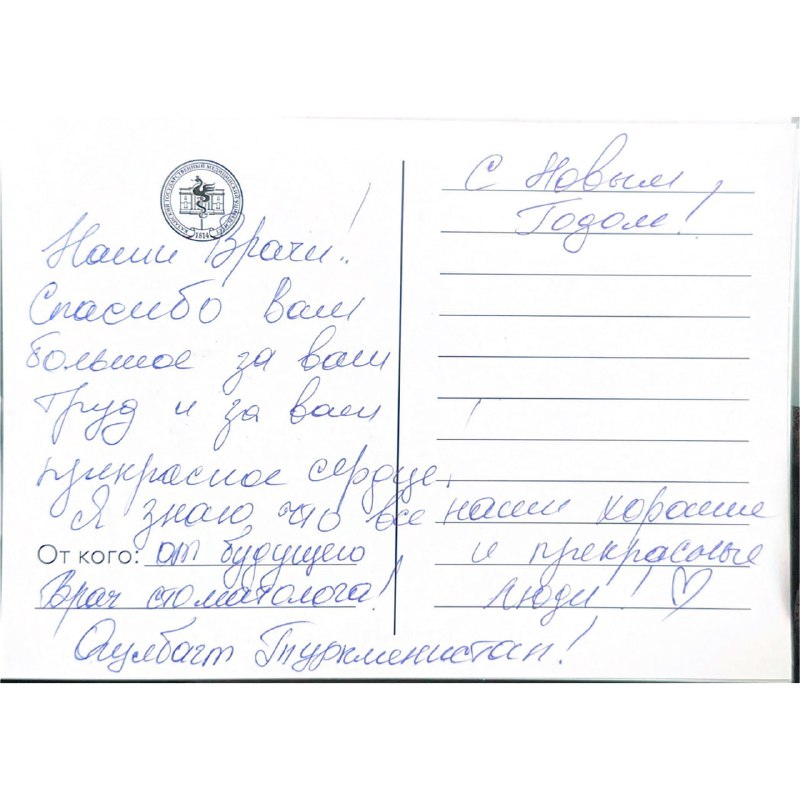 КАЗАНСКИЙ ГОСУДАРСТВЕННЫЙ МЕДИЦИНСКИЙ УНИВЕРСИТЕТ
1814
Наши Врачи!
Спасибо Вам
большое за ваш
труд и за ваш
прекрасное сердце,
Я знаю, что все наши хорошие
и прекрасные
люди!
От кого: от будущего
Врач стоматолога!
Туркменистан!
С Новым
Годом!